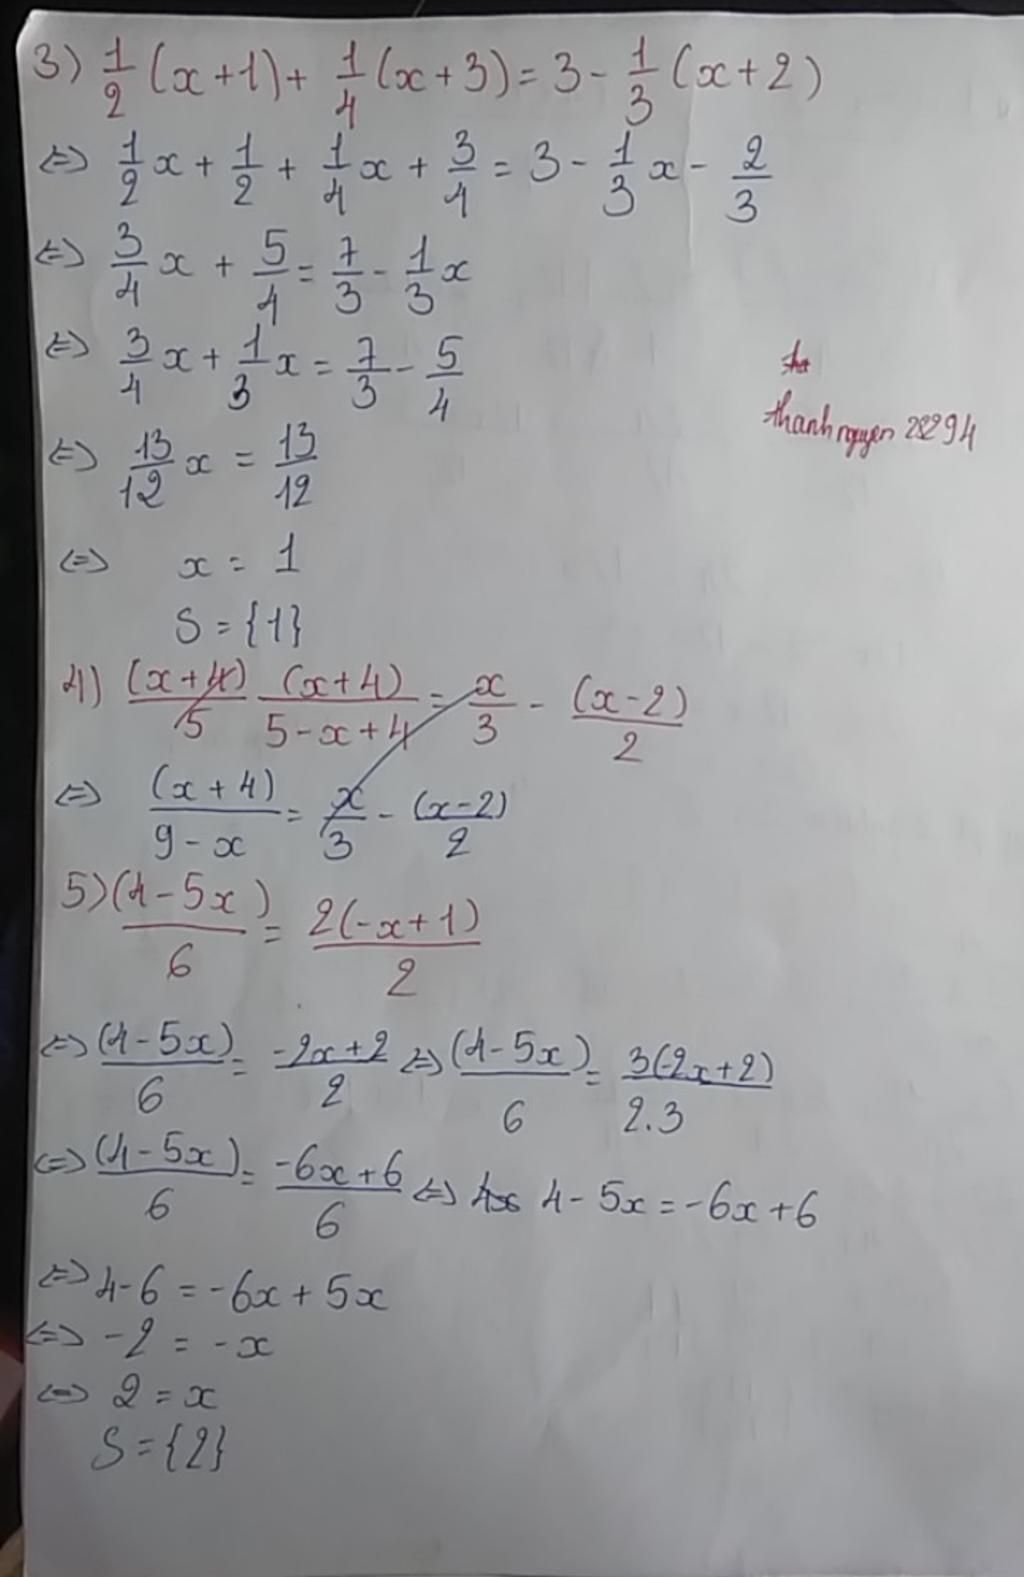 3) 1/2 (x+1) + 1/4 (x+3) = 3 - 1/3 (x+2)
<=> 1/2 x + 1/2 + 1/4 x + 3/4 = 3 - 1/3 x - 2/3
<=> 3/4 x + 5/4 = 7/3 - 1/3 x
<=> 3/4 x + 1/3 x = 7/3 - 5/4
thanhnguyen 28294
<=> 13/12 x = 13/12
<=> x = 1
S = {1}
4) (x+4)/5 (x+4)/(5-x+4) = x/3 - (x-2)/2
<=> (x+4)/(9-x) = x/3 - (x-2)/2
5) (4-5x)/6 = 2(-x+1)/2
<=> (4-5x)/6 = (-2x+2)/2 <=> (4-5x)/6 = 3(-2x+2)/2.3
<=> (4-5x)/6 = (-6x+6)/6 <=> 4-5x = -6x+6
<=> 4-6 = -6x+5x
<=> -2 = -x
<=> 2 = x
S = {2}